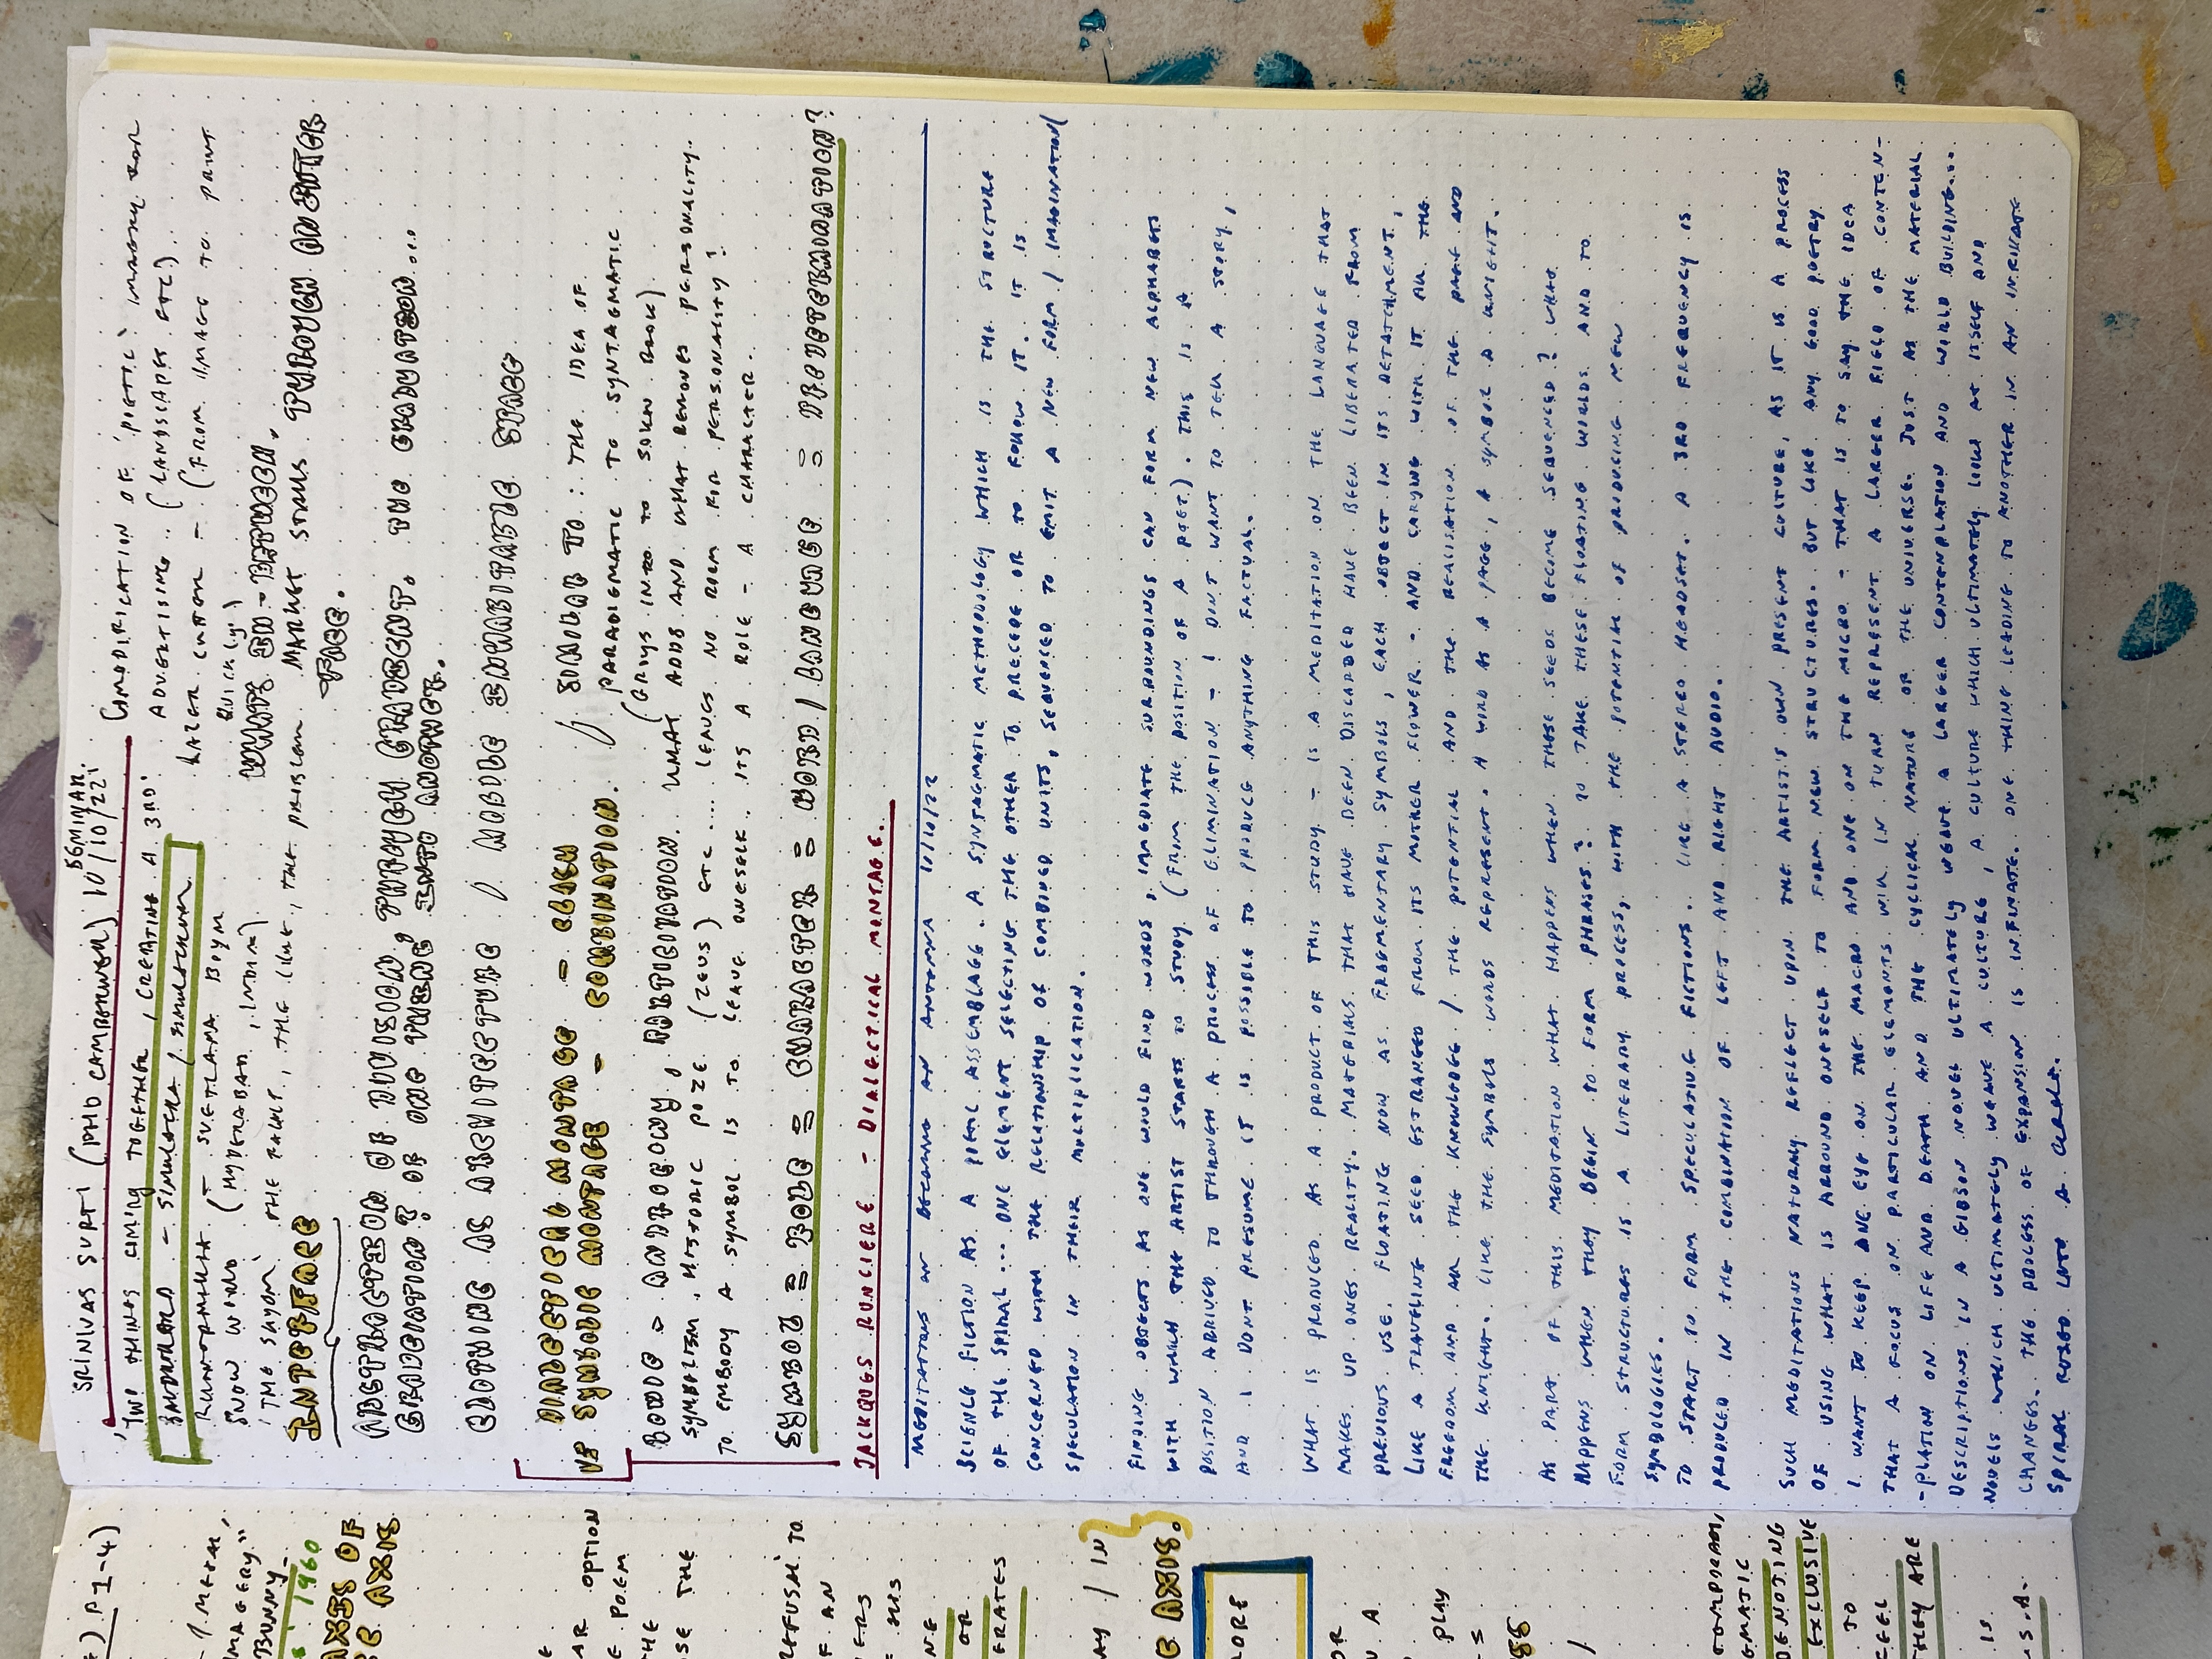 SRINIVAS SURTI (PHD CAMBERWELL) 10/10/22' SEMINAR.
'TWO THINGS COMING TOGETHER, CREATING A 3RD'
BAUDRILLARD - SIMULACRA / SIMULACRUM
(- SVETLANA BOYM
SNOW WORLD (HYDERABAD, INDIA)
'THE SHYOM' THE FAULT, THE LIKE, THE PROBLEM
INTERFACE
COMODIFICATION OF 'POETIC' IMAGERY FOR
ADVERTISING.. (LANDSCAPE ETC)
LAZER CUTTER - (FROM IMAGE TO PRINT
QUICKLY)
WHATS IN-BETWEEN.
MARKET STALLS THROUGH AN OUTER
FACE.
ABSTRACTION OF DIVISION, THROUGH GRADIENT. THE GRADUATION...
GRADUATION? OF ONE THING INTO ANOTHER.
CLOTHING AS ARCHITECTURE / MOBILE INHABITABLE SPACE
DIALECTICAL MONTAGE - CLASH
VS SYMBOLIC MONTAGE - COMBINATION.
// SIMILAR TO: THE IDEA OF
PARADIGMATIC TO SYNTAGMATIC
(GOES INTO TO SAKN BOOK)
BOWIE - ANDROGONY, PANTIGONATION. WHAT ADDS AND WHAT REMOVES PERSONALITY..
SYMBOLISM, HISTORIC POZE (ZEUS) ETC.... LEAVES NO ROOM FOR PERSONALITY?
TO EMBODY A SYMBOL IS TO LEAVE ONESELF.. ITS A ROLE - A CHARACTER..
SYMBOL = ROLE = CHARACTER = WORD / LANGUAGE = REPRESENTATION?
JACKQUES RUNCIERE - DIALECTICAL MONTAGE.
MEDITATIONS ON BECOMING AN ANTENNA 10/10/22
SCIENCE FICTION AS A POETIC ASSEMBLAGE. A SYNTAGMATIC METHODOLOGY WHICH IS THE STRUCTURE
OF THE SPIRAL... ONE ELEMENT SELECTING THE OTHER TO PRECEDE OR TO FOLLOW IT. IT IS
CONCERNED WITH THE RELATIONSHIP OF COMBINED UNITS, SEQUENCED TO EMIT A NEW FORM / IMAGINATION /
SPECULATION IN THEIR MULTIPLICATION.
FINDING OBJECTS AS ONE WOULD FIND WORDS, IMMEDIATE SURROUNDINGS CAN FORM NEW ALPHABETS
WITH WHICH THE ARTIST STARTS TO STUDY (FROM THE POSITION OF A POET). THIS IS A
POSITION ARRIVED TO THROUGH A PROCESS OF ELIMINATION - I DONT WANT TO TELL A STORY,
AND I DONT PRESUME IT IS POSSIBLE TO PRODUCE ANYTHING FACTUAL.
WHAT IS PRODUCED AS A PRODUCT OF THIS STUDY - IS A MEDITATION ON THE LANGUAGE THAT
MAKES UP ONES REALITY. MATERIALS THAT HAVE BEEN DISCARDED HAVE BEEN LIBERATED FROM
PREVIOUS USE, FLOATING NOW AS FRAGMENTARY SYMBOLS, EACH OBJECT IN ITS DETATCHMENT,
LIKE A TRAVELING SEED ESTRANGED FROM ITS MOTHER FLOWER - AND CARYING WITH IT ALL THE
FREEDOM AND ALL THE KNOWLEDGE / THE POTENTIAL AND THE REALISATION OF THE PAGE AND
THE KNIGHT. LIKE THE SYMBOLS WORDS REPRESENT. A WORD AS A PAGE, A SYMBOL A KNIGHT.
AS PART OF THIS MEDITATION WHAT HAPPENS WHEN THESE SEEDS BECOME SEQUENCED? WHAT
HAPPENS WHEN THEY BEGIN TO FORM PHRASES? TO TAKE THESE FLOATING WORLDS AND TO
FORM STRUCTURES IS A LITERARY PROCESS, WITH THE POTENTIAL OF PRODUCING NEW
SYMBOLOGIES.
TO START TO FORM SPECULATIVE FICTIONS.. LIKE A STEREO HEADSET. A 3RD FREQUENCY IS
PRODUCED IN THE COMBINATION OF LEFT AND RIGHT AUDIO.
SUCH MEDITATIONS NATURALLY REFLECT UPON THE ARTIST'S OWN PRESENT CULTURE, AS IT IS A PROCESS
OF USING WHAT IS AROUND ONESELF TO FORM NEW STRUCTURES. BUT LIKE ANY GOOD POETRY
I WANT TO KEEP ONE EYE ON THE MACRO AND ONE ON THE MICRO - THAT IS TO SAY THE IDEA
THAT A FOCUS ON PARTICULAR ELEMENTS WILL IN TURN REPRESENT A LARGER FIELD OF CONTEM-
-PLATION ON LIFE AND DEATH AND THE CYCLICAL NATURE OF THE UNIVERSE. JUST AS THE MATERIAL
DESCRIPTIONS IN A GIBSON NOVEL ULTIMATELY WEAVE A LARGER CONTEMPLATION AND WORLD BUILDING...
NOVELS WHICH ULTIMATELY WEAVE A CULTURE, A CULTURE WHICH ULTIMATELY LOOKS AT ITSELF AND
CHANGES. THE PROCESS OF EXPANSION IS INFINATE. ONE THING LEADING TO ANOTHER IN AN INTRICATE
SPIRAL FUSED INTO A CIRCLE.
) P1-4)
- 1 METAL,
IMAGERY"
BUNNY
1960
AXIS OF
AXIS
OPTION
POEM
THE
USE THE
REFUSAL TO
F AN
OR
ERATES
/ IN
AXIS.
LORE
OR
U A
PLAY
EMATIC
DENOTING
EXCLUSIVE
TO
FEEL
THEY ARE
IS